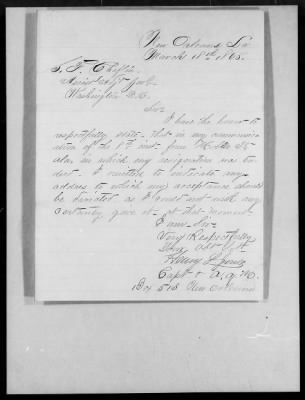 New Orleans La
March 18th 1865.
S. F. Chaffin
Assist Adjt Genl.
Washington D.C.
Sir
I have the honor to
respectfully state, that in my communic-
ation of the 8th inst. from
in which my resignation was ten-
dered. I omitted to indicate my
address to which my acceptance should
be directed as I could not with any
certainty gave it at that moment.
I am Sir
Very Respectfully
Your Obt Svt
Capt & A.Q.M.
Box 518 New Orleans